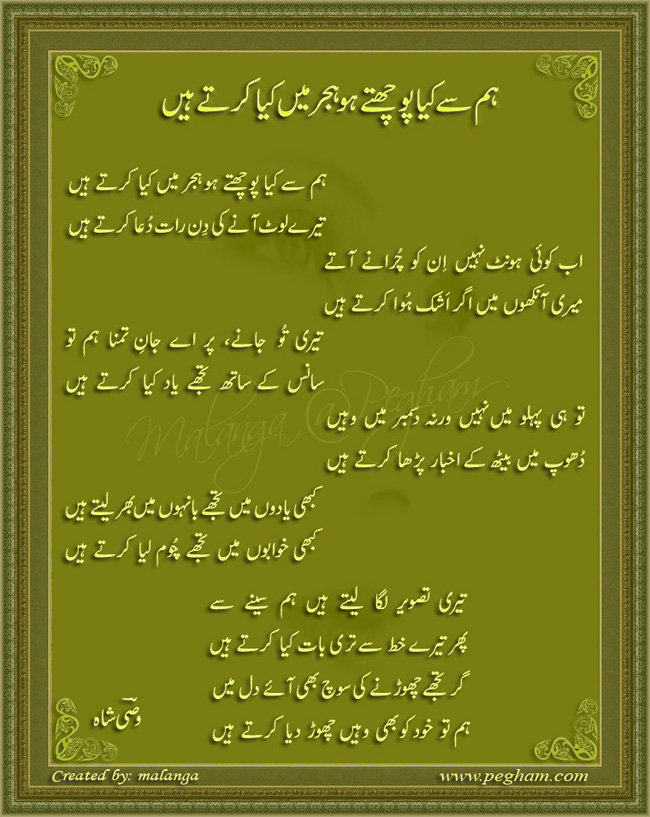 ہم سے کیا پوچھتے ہو ہجر میں کیا کرتے ہیں
ہم سے کیا پوچھتے ہو ہجر میں کیا کرتے ہیں
تیرے لوٹ آنے کی دِن رات دُعا کرتے ہیں
اب کوئی ہونٹ نہیں اِن کو چُرانے آتے
میری آنکھوں میں اگر اَشک ہُوا کرتے ہیں
تیری تُو جانے، پر اے جانِ تمنا ہم تو
سانس کے ساتھ تجھے یاد کیا کرتے ہیں
تو ہی پہلو میں نہیں ورنہ دسمبر میں وہیں
دُھوپ میں بیٹھ کے اخبار پڑھا کرتے ہیں
کبھی یادوں میں تجھے بانہوں میں بھر لیتے ہیں
کبھی خوابوں میں تجھے چُوم لیا کرتے ہیں
تیری تصویر لگا لیتے ہیں ہم سینے سے
پھر تیرے خط سے تری بات کیا کرتے ہیں
گر تجھے چھوڑنے کی سوچ بھی آئے دل میں
ہم تو خود کو بھی وہیں چھوڑ دیا کرتے ہیں
وصی شاہ
Malanga @ Pegham
Created by: malanga
www.pegham.com